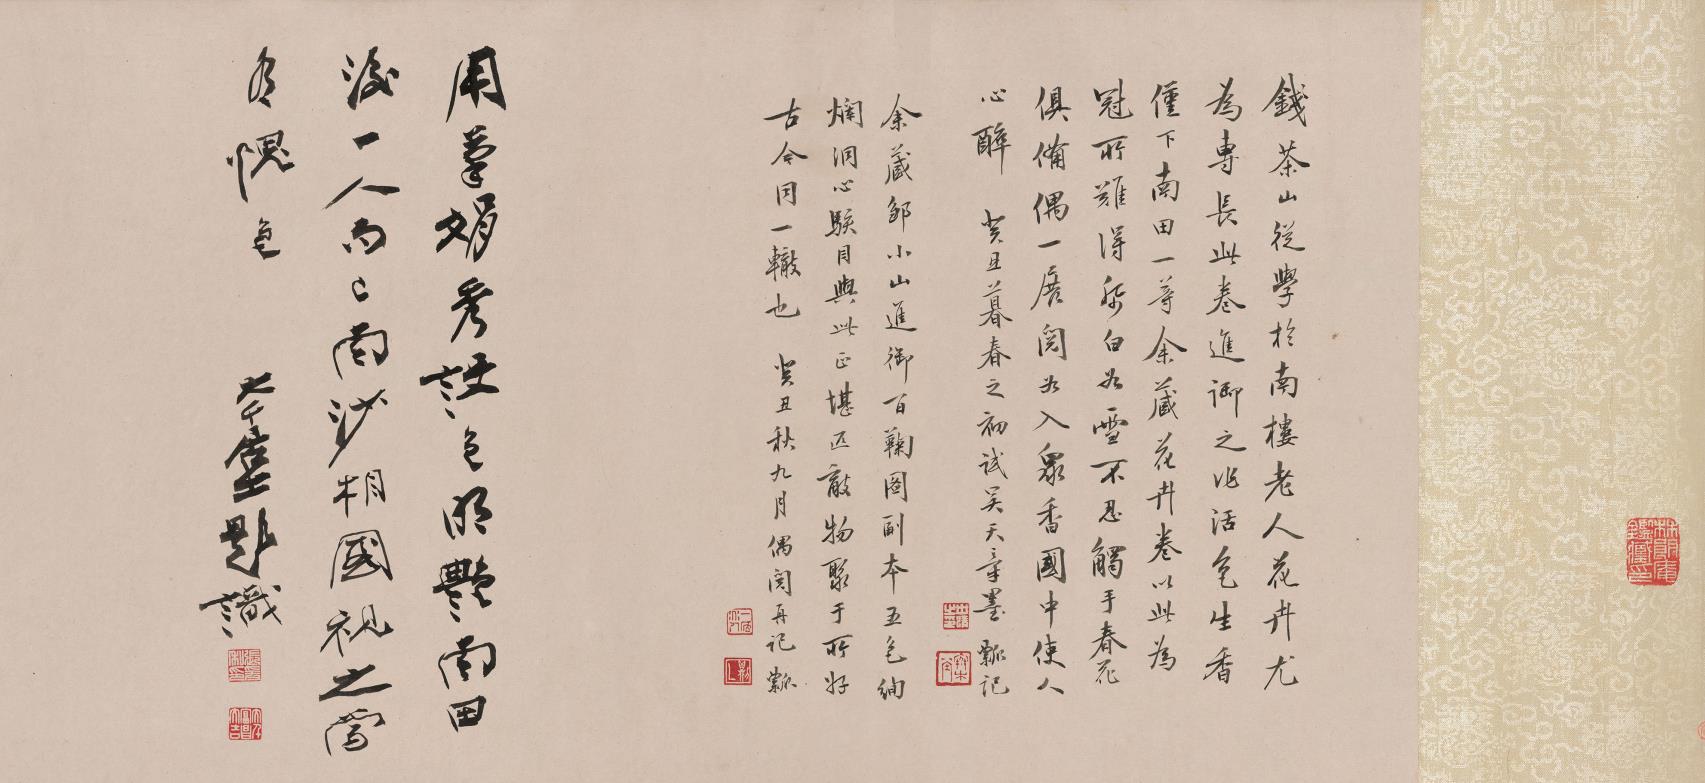 錢茶山從學於南樓老人花卉尤
為專長此卷進御之作活色生香
僅下南田一等余藏花卉卷以此為
冠所難得紙白如雪不忍觸手春花
俱備偶一展閱如入眾香國中使人
心醉 癸丑暮春之初試吳天章墨 瓢記
余藏鄒小山進御百鞠圖副本五色絢
爛洞心駭目與此正堪匹敵物聚于所好
古今同一轍也 癸丑秋九月偶閱再記 瓢
用筆娟秀設色明艷南田
後一人而已南沙相國視之當
有愧色
大千居士題識